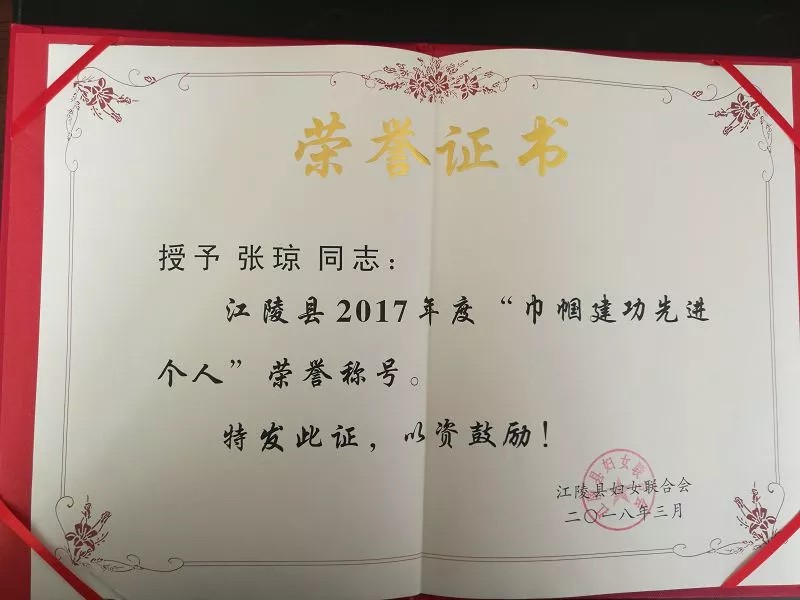 荣誉证书
授予 张琼 同志：
江陵县2017年度“巾帼建功先进
个人”荣誉称号。
特发此证，以资鼓励！
江陵县妇女联合会
二〇一八年三月
江陵县妇女联合会